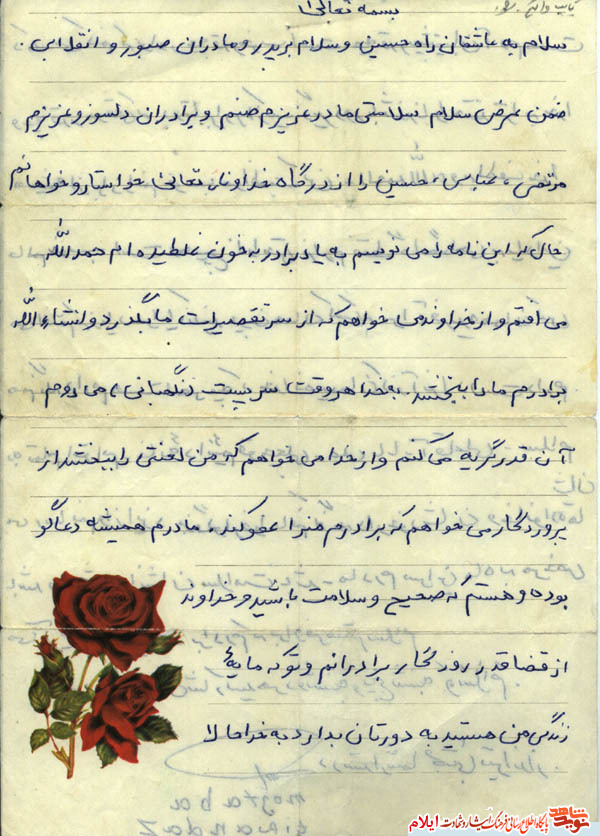 بسمه تعالی
سلام به عاشقان راه حسین و سلام بر پدر و مادران صبور و انقلابی.
ضمن عرض سلام سلامتی مادر عزیزم صنم و برادران دلسوز و عزیزم
مرتضی، عباس، حسین را از درگاه خداوند تعالی خواستار و خواهانم
حال که این نامه را می نویسم به یاد برادر به خون غلطیده ام حمدالله
می افتم و از خداوند می خواهم که از سر تقصیرات ما بگذرد و انشاءالله
برادرم ما را ببخشد. به خدا هر وقت سر پست (نگهبانی) می روم
آن قدر گریه می کنم و از خدا می خواهم که من لعنتی را ببخشد از
پروردگار می خواهم که برادرم منو را عفو کند. مادرم همیشه دعاگو
بوده و هستم که صحیح و سلامت باشید و خداوند
از قضا قدر روزگار برادرانم و تو که مایهٔ
زندگی من هستید به دورتان بدارد به خدا حالا
پایگاه اطلاع رسانی فرهنگ ایثار و شهادت ایلام
نوید شاهد